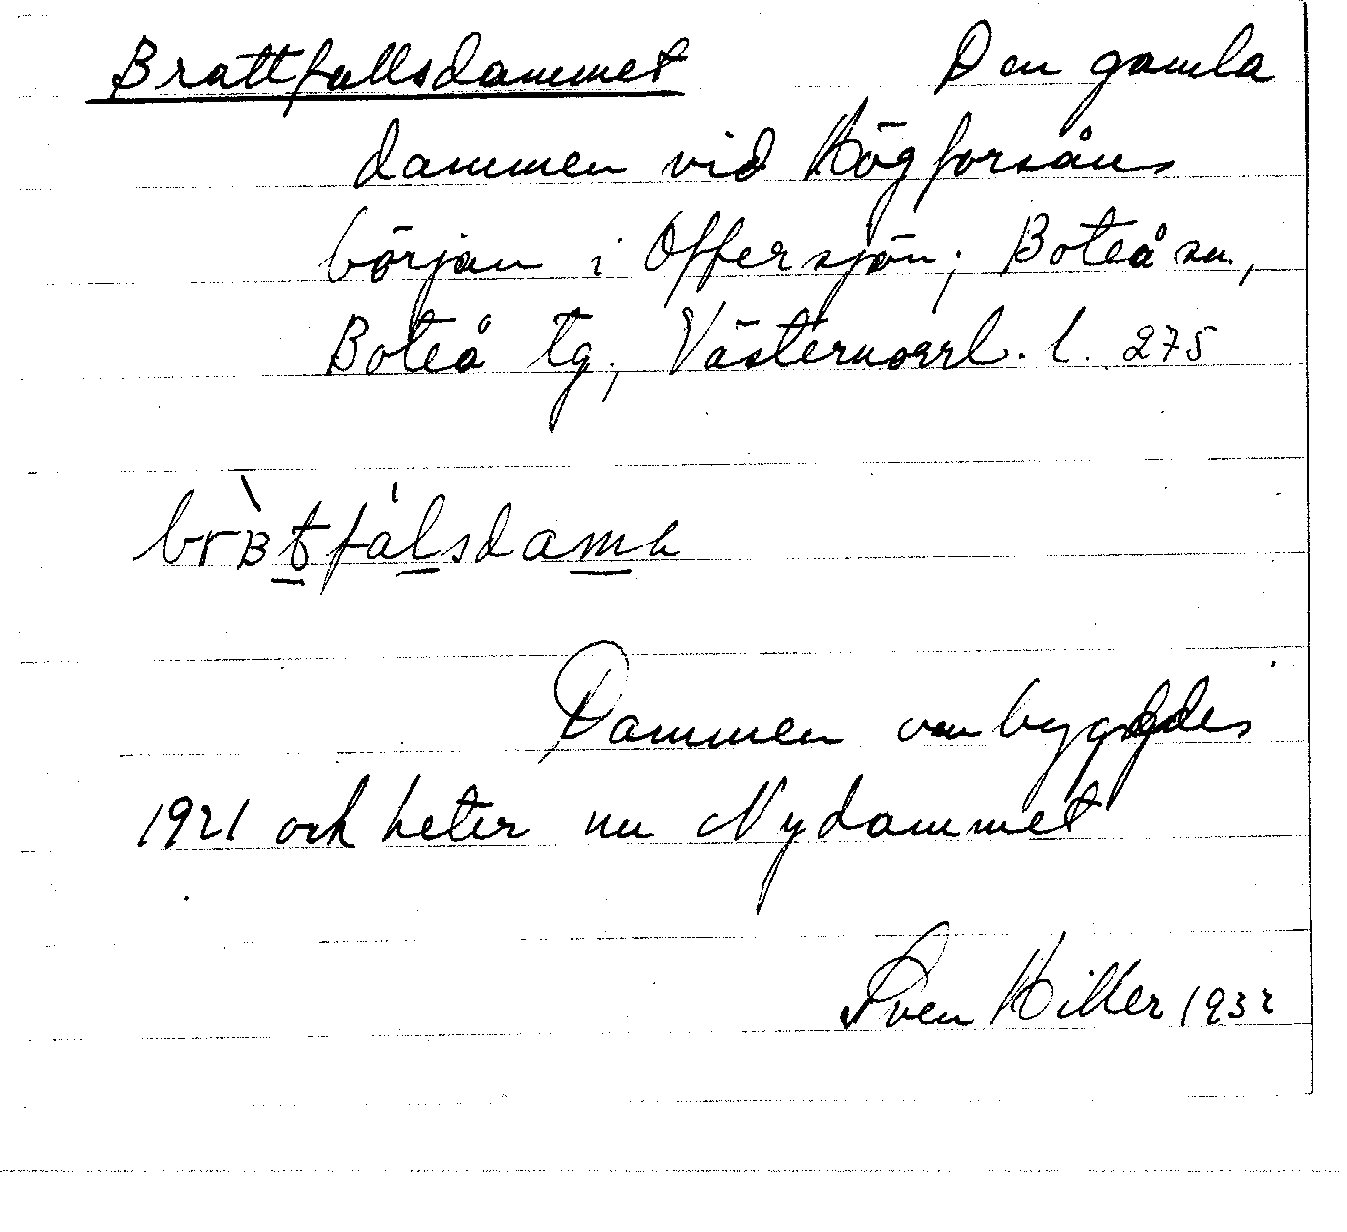 Brattfallsdammet Den gamla
dammen vid Högforsåns
början i Offersjön; Boteå sn,
Boteå tg, Västernorrl. l. 275
brʙ̀tfálsdama
Dammen ombyggdes
1921 och heter nu Nydammet
Sven Hiller 1932